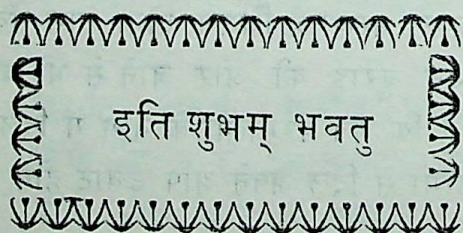 इति शुभम् भवतु